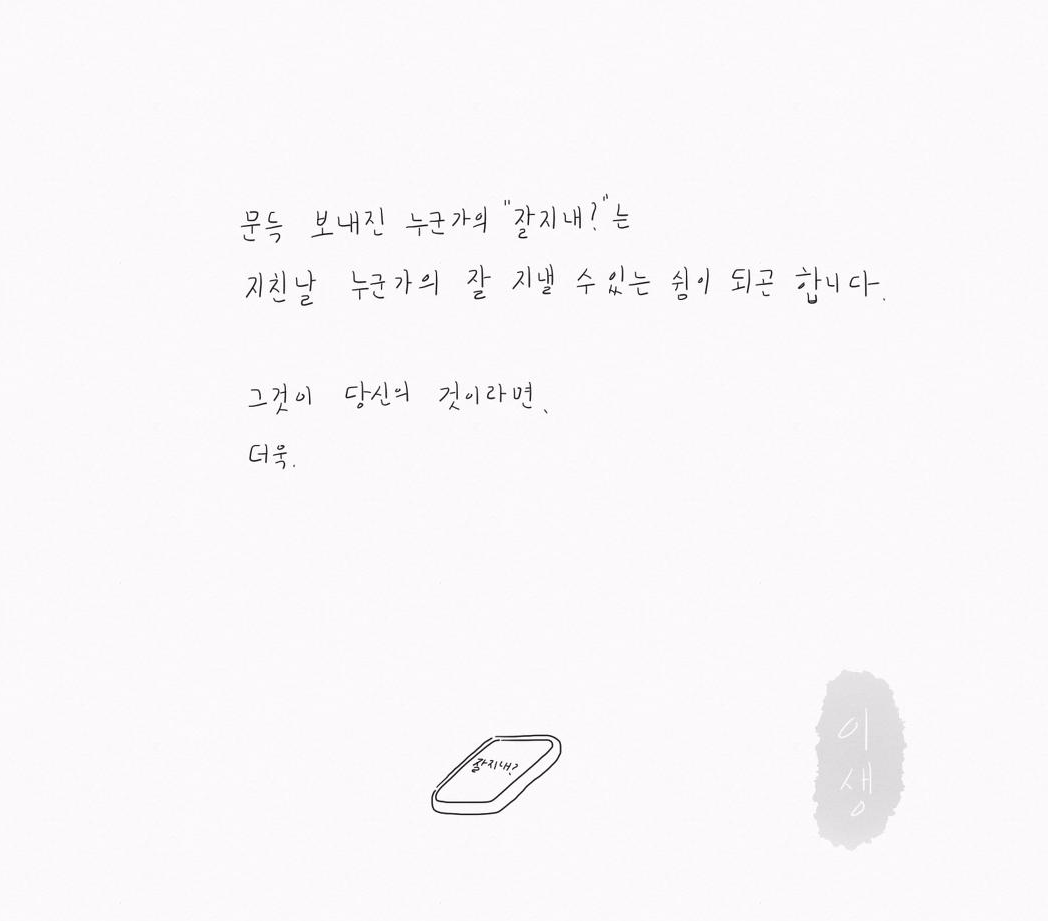 문득 보내진 누군가의 "잘지내?"는
지친날 누군가의 잘 지낼 수있는 쉼이 되곤 합니다.
그것이 당신의 것이라면,
더욱.
잘지내?
이
생